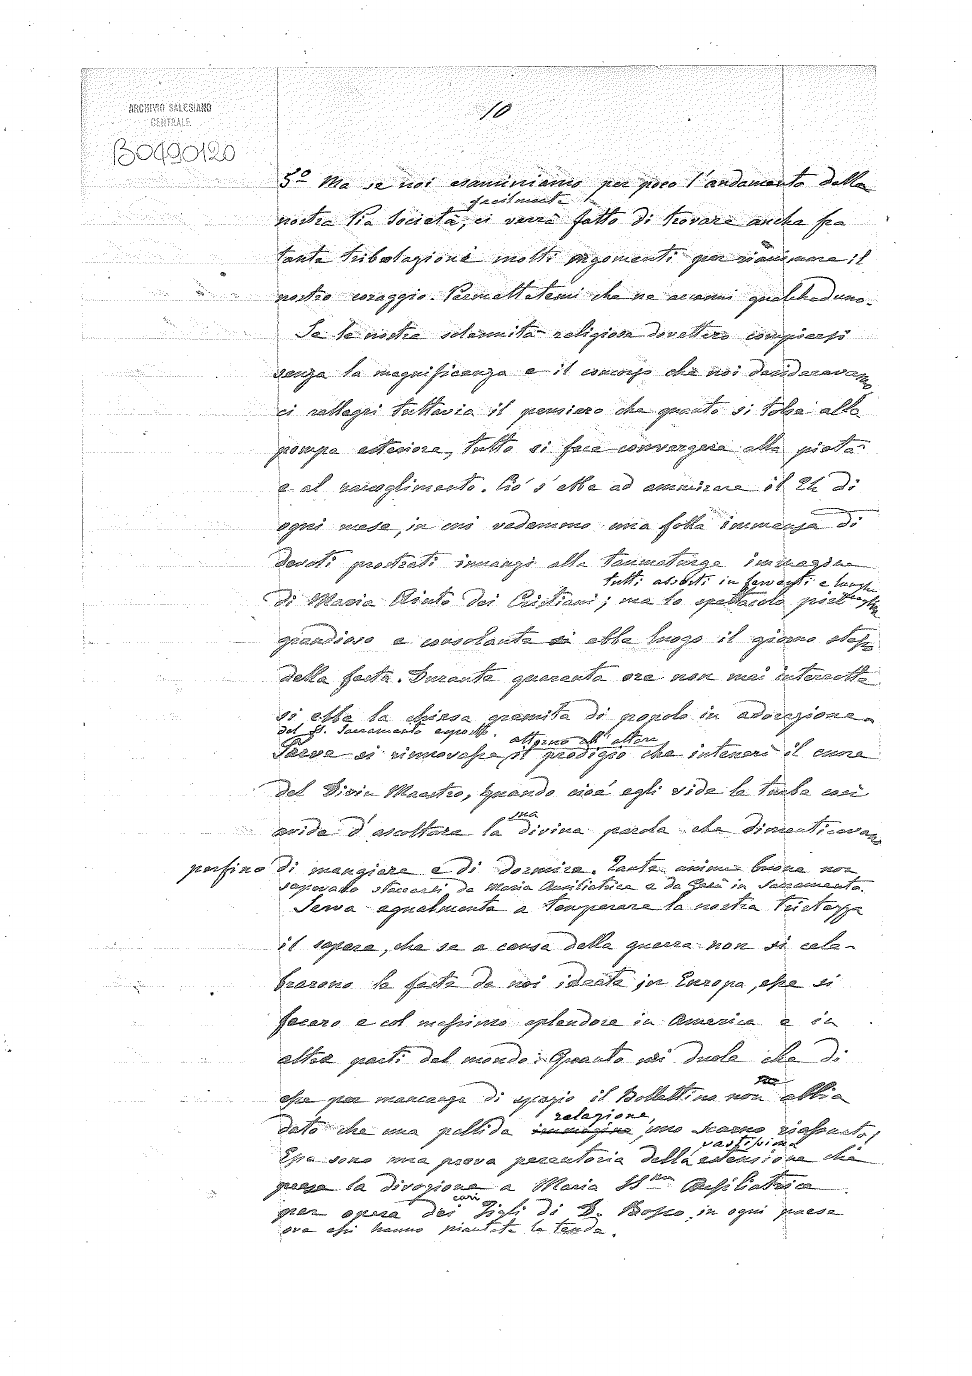 ARCHIVIO SALESIANO
CENTRALE
B0490120
10
5º Ma se noi esaminiamo per poco l'andamento della
facilmente
nostra Pia Società, ci verrà fatto di trovare anche fra
tante tribolazioni molti argomenti per rianimare il
nostro coraggio. Permettetemi che ne accenni qualcheduno.
Se le nostre solennità religiose dovettero compiersi
senza la magnificenza e il concorso che noi desideravamo
ci rallegri tuttavia il pensiero che quanto si tolse alla
pompa esteriore, tutto si fece convergere alla pietà
e al raccoglimento. Ciò s'ebbe ad ammirare il 24 di
ogni mese, in cui vedemmo una folla immensa di
devoti prostrati innanzi alla taumaturga immagine
tutti assorti in ferventi e lunghe preghiere
di Maria Aiuto dei Cristiani; ma lo spettacolo più
grandioso e consolante si ebbe luogo il giorno stesso
della festa. Durante quaranta ore non mai interrotte
si ebbe la chiesa gremita di popolo in adorazione
del SS. Sacramento esposto. attorno all'altare
Parve si rinnovasse il prodigio che intenerì il cuore
del Divin Maestro, quando cioè egli vide le turbe così
sua
avide d'ascoltare la divina parola che dimenticavano
perfino di mangiare e di dormire. Tante anime buone non
sapevano staccarsi da Maria Ausiliatrice e da Gesù in Sacramento.
Serva egualmente a temperare la nostra tristezza
il sapere, che se a causa della guerra non si cele-
brarono le feste da noi ideate in Europa, esse si
fecero e col massimo splendore in America e in
altre parti del mondo. Quanto mi duole che di
esse per mancanza di spazio il Bollettino non abbia
relazione,
dato che una pallida immagine, uno scarno riassunto!
vastissima
Esse sono una prova perentoria della estensione che
prese la divozione a Maria SSma Ausiliatrice
cari
per opera dei Figli di D. Bosco in ogni paese
ove essi hanno piantate le tende.